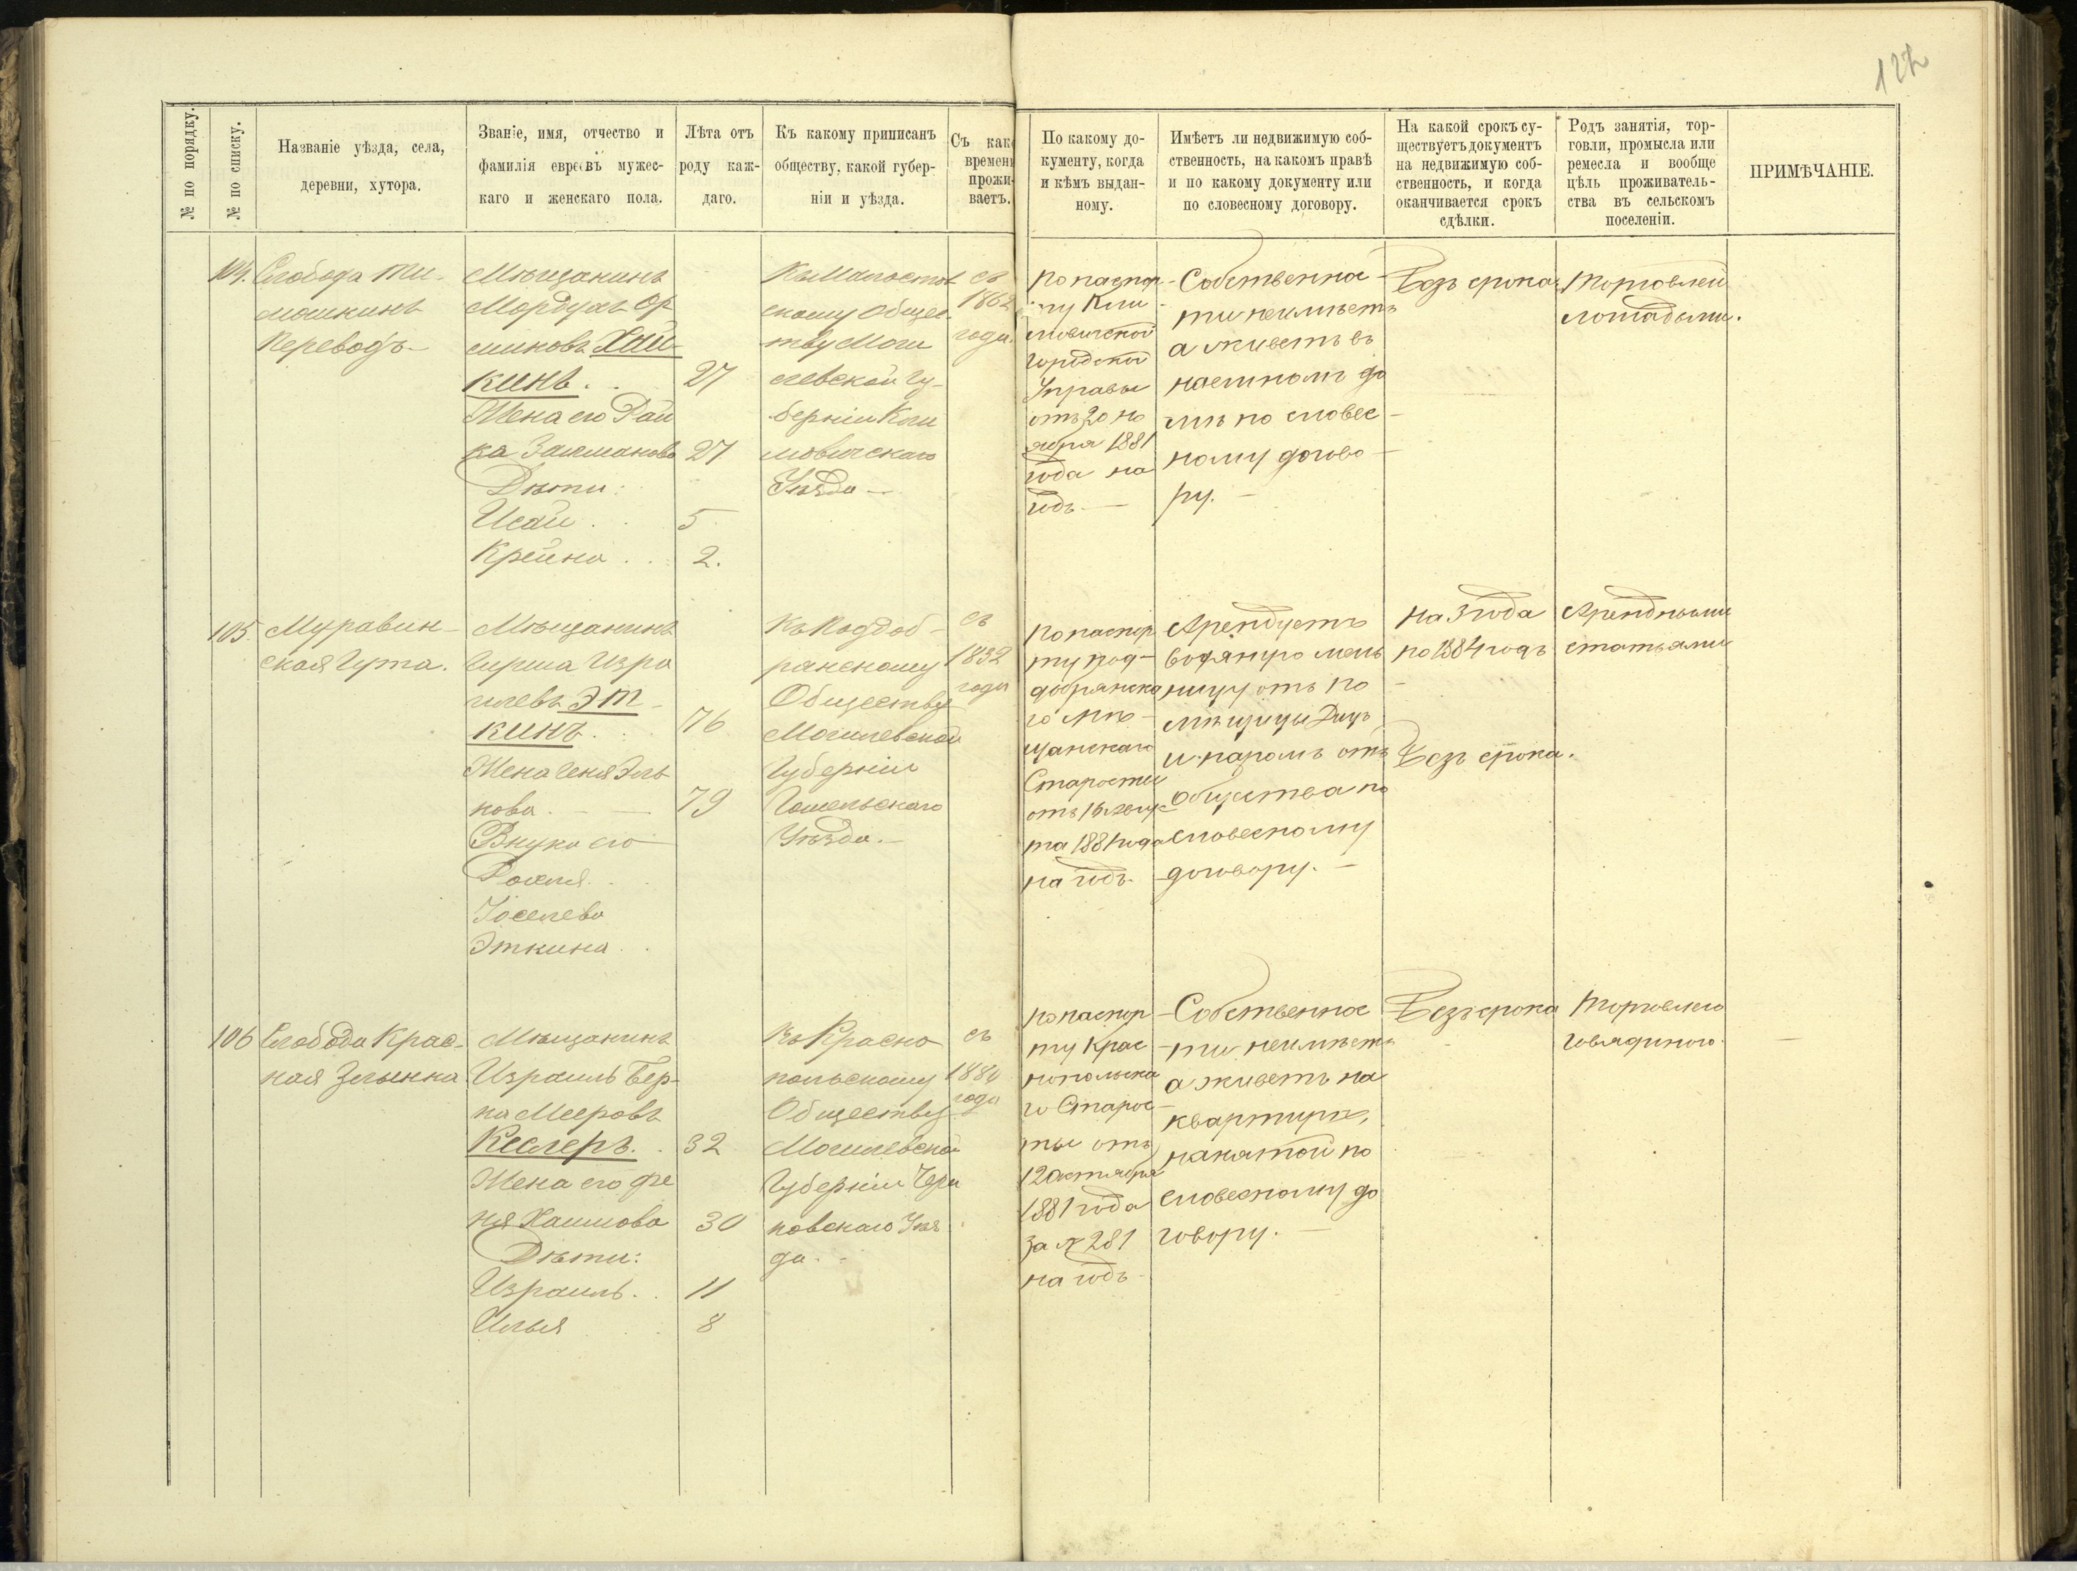 122
№ по порядку.
№ по списку.
Названіе уѣзда, села,
деревни, хутора.
Званіе, имя, отчество и
фамилія евреевъ мужес-
каго и женскаго пола.
Лѣта отъ
роду каж-
даго.
Къ какому приписанъ
обществу, какой губер-
ніи и уѣзда.
Съ како
времени
прожи-
ваетъ.
По какому до-
кументу, когда
и кѣмъ выдан-
ному.
Имѣетъ ли недвижимую соб-
ственность, на какомъ правѣ
и по какому документу или
по словесному договору.
На какой срокъ су-
ществуетъ документъ
на недвижимую соб-
ственность, и когда
оканчивается срокъ
сдѣлки.
Родъ занятія, тор-
говли, промысла или
ремесла и вообще
цѣль проживатель-
ства въ сельскомъ
поселеніи.
ПРИМѢЧАНІЕ.
104.
Слобода Ти-
мошкинъ
Переводъ
Мѣщанинъ
Мордухъ
кинъ.
Жена его
Дѣти:
Исай
Крейна
27
27
5
2.
скому Общес-
тву Моги
левской Гу-
берніи Кли
мовичскаго
Уѣзда
съ
1862
года
По паспор-
ту Кли
мовичской
городской
Управы
отъ 20 но
ября 1881
года на
годъ
Собственно
сти неимѣетъ
а живетъ въ
наемномъ до
мѣ по словес
ному догово
ру.
Безъ срока
Торговлей
лошадьми.
105.
Муравин-
ская Гута.
Мѣщанинъ
Гирша Изра
илевъ Эт-
кинъ.
Жена Геня Эль
кова
Внука его
Рохля
Іоселева
Эткина
76
79
Къ Поддоб-
рянскому
Обществу
Могилевской
Губерніи
Гомельскаго
Уѣзда.
съ
1832
года
По паспор
ту под-
добрянска
го мѣ-
щанскаго
Старосты
отъ 16 авгус
та 1881 года
на годъ
Арендуетъ
водяную мель
ницу отъ по
мѣщицы
и паромъ отъ
Общества по
словесному
договору.
На 3 года
по 1884 годъ
Безъ срока.
Арендными
статьями
106
Слобода Крас-
ная Злынка
Мѣщанинъ
Израиль Бер-
ка Мееровъ
Кеслеръ.
Жена его Фе
ня Хаимова
Дѣти:
Израиль
Илья
32
30
11
8
Къ Красно
польскому
Обществу
Могилевской
Губерніи Чери
ковскаго Уѣз
да.
съ
1880
года
По паспор
ту Крас
нопольска
го Старос-
ты отъ
12 октября
1881 года
за № 281
на годъ
Собственнос
ти неимѣетъ
а живетъ на
квартирѣ,
нанятой по
словесному до
говору.
Безъ срока
Торговлею
говядиною.